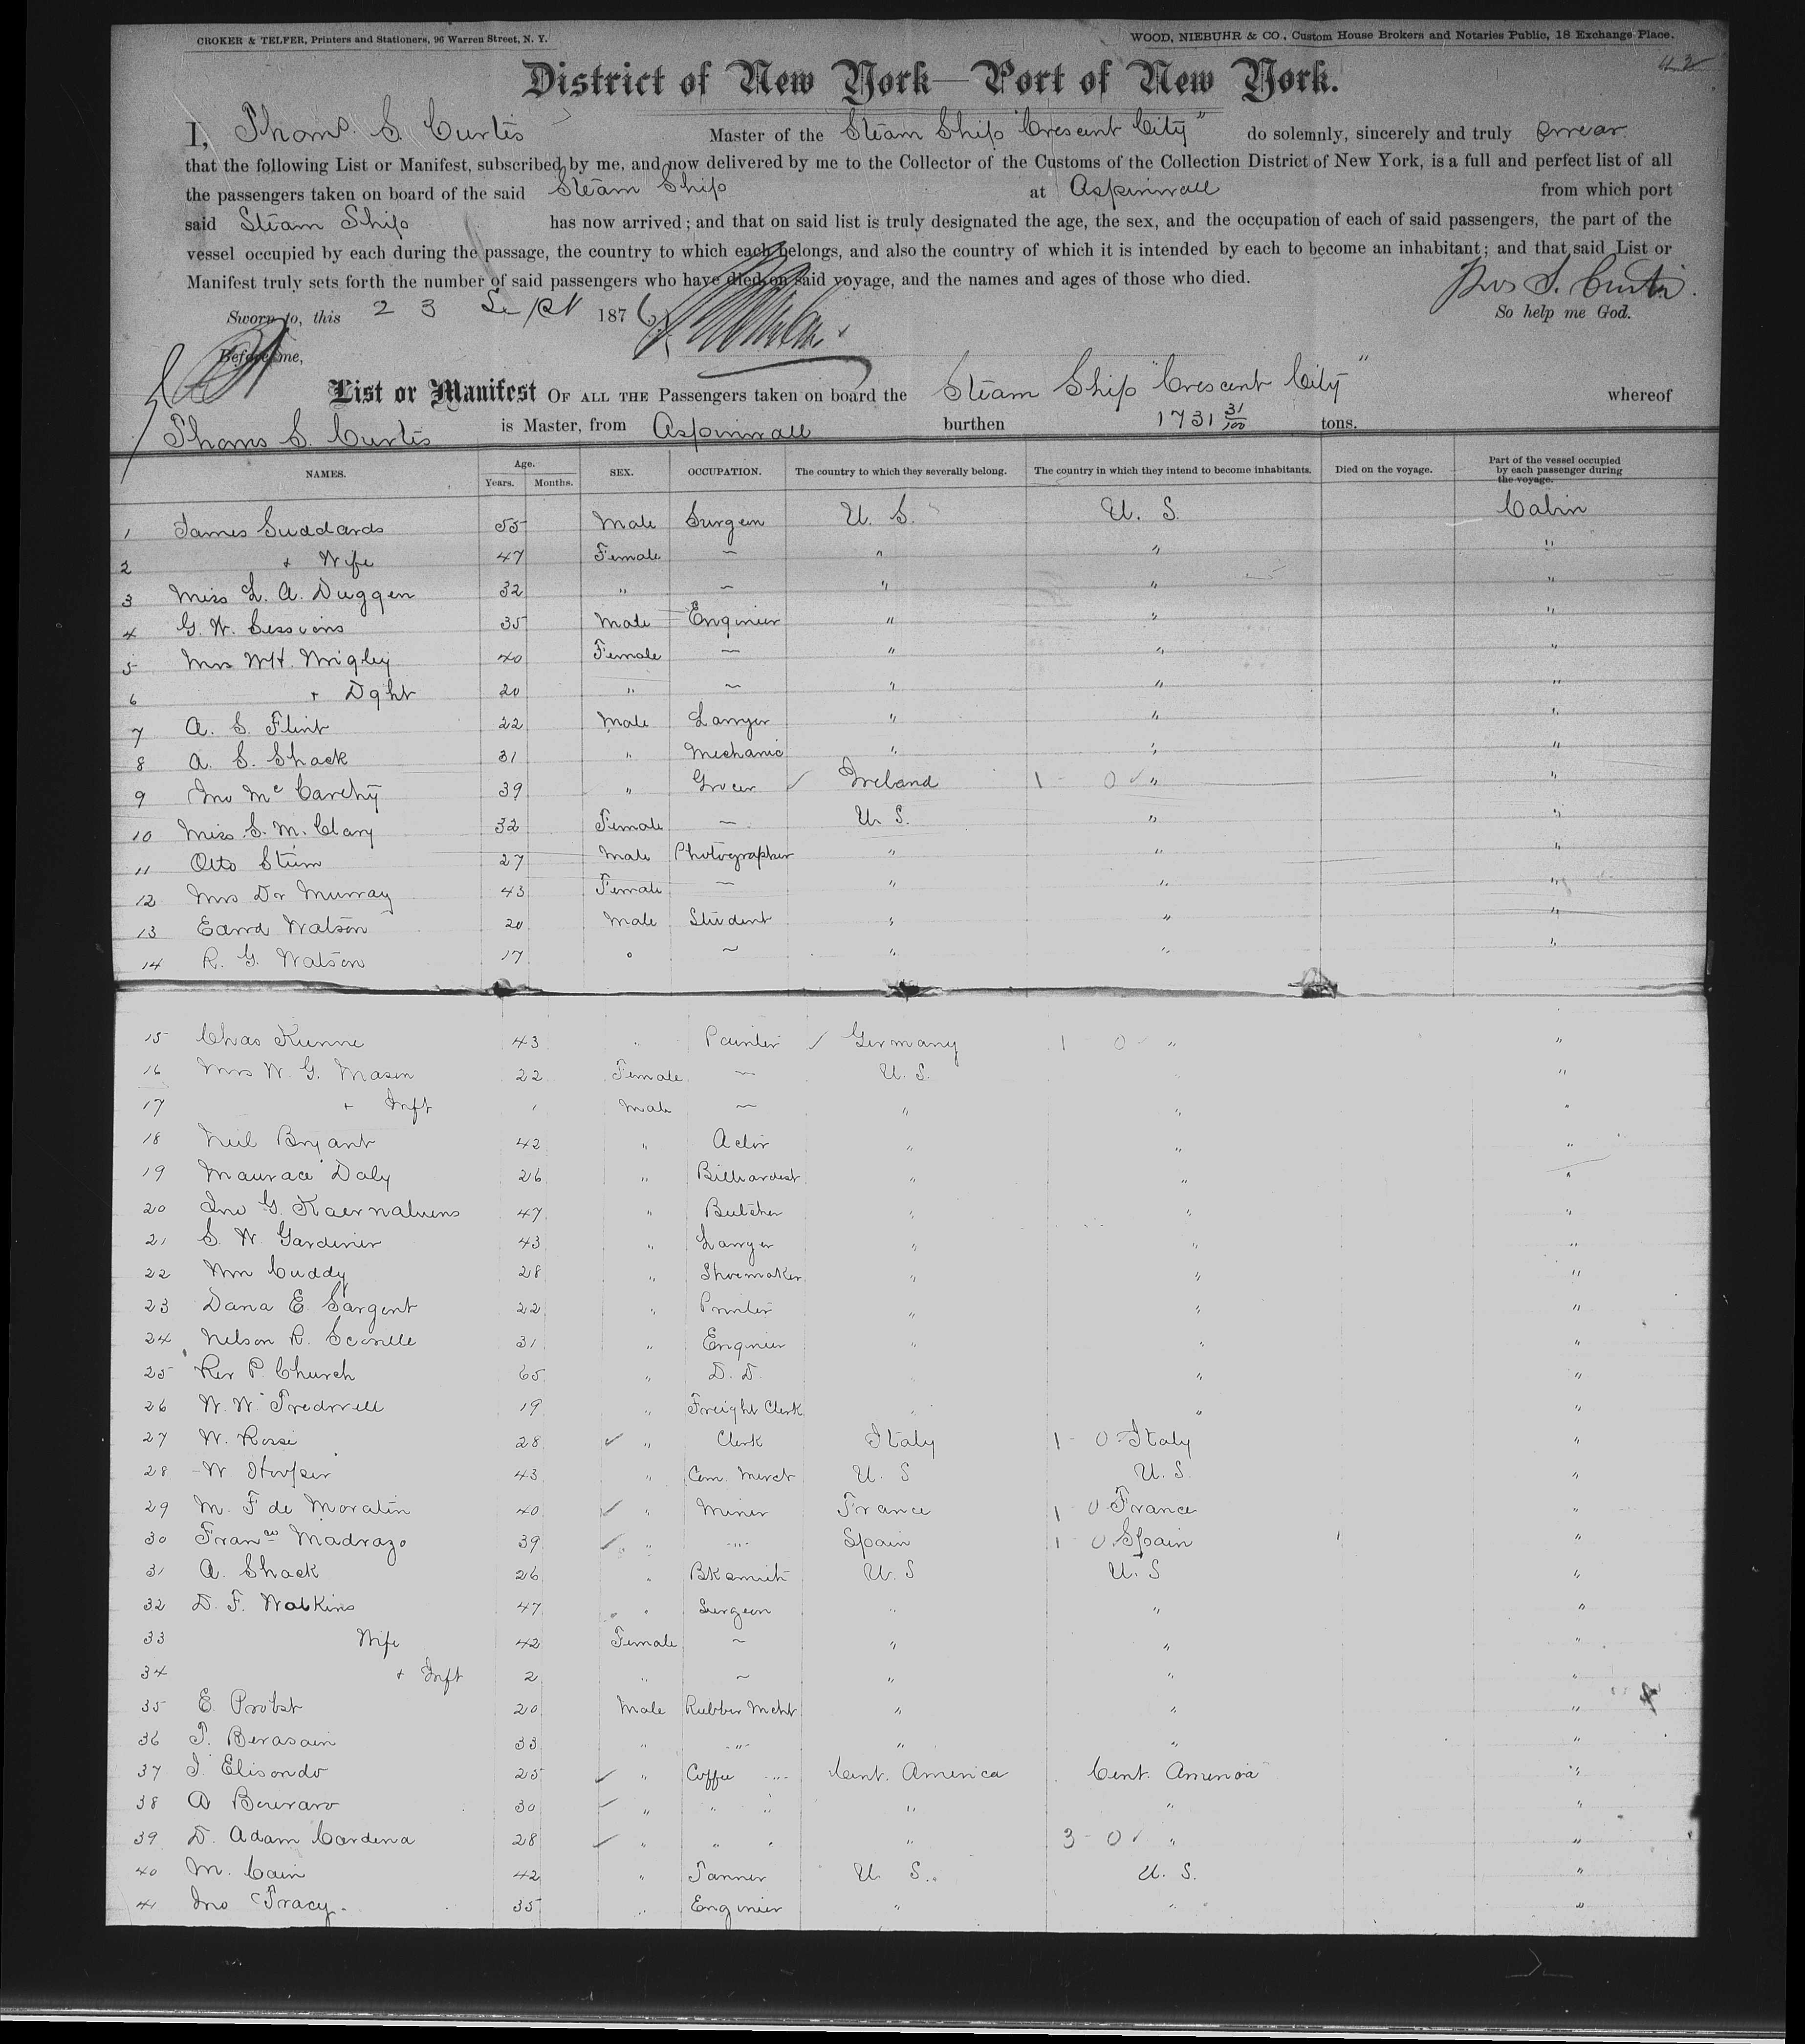 CROKER & TELFER, Printers and Stationers, 96 Warren Street, N. Y. WOOD, NIEBUHR & CO., Custom House Brokers and Notaries Public, 18 Exchange Place.
42
District of New York—Port of New York.
I, Thoms. S. Curtis Master of the Steam Ship "Crescent City" do solemnly, sincerely and truly swear
that the following List or Manifest, subscribed by me, and now delivered by me to the Collector of the Customs of the Collection District of New York, is a full and perfect list of all
the passengers taken on board of the said Steam Ship at Aspinwall from which port
said Steam Ship has now arrived; and that on said list is truly designated the age, the sex, and the occupation of each of said passengers, the part of the
vessel occupied by each during the passage, the country to which each belongs, and also the country of which it is intended by each to become an inhabitant; and that said List or
Manifest truly sets forth the number of said passengers who have died on said voyage, and the names and ages of those who died.
Thos S. Curtis.
Sworn to, this 23 Sept 1876 So help me God.
Before me,
List or Manifest OF ALL THE Passengers taken on board the Steam Ship "Crescent City" whereof
Thoms S. Curtis is Master, from Aspinwall burthen 1731 31/100 tons.
NAMES. Age. Years. Months. SEX. OCCUPATION. The country to which they severally belong. The country in which they intend to become inhabitants. Died on the voyage. Part of the vessel occupied by each passenger during the voyage.
1 James Suddards 55 Male Surgeon U. S. U. S. Cabin
2 + Wife 47 Female ~ " " "
3 Miss L. A. Duggen 32 " ~ " " "
4 G. W. Sessions 35 Male Engineer " " "
5 Mrs WH. Wrigley 40 Female ~ " " "
6 + Dght 20 " ~ " " "
7 A. S. Flint 22 Male Lawyer " " "
8 A. S. Shack 31 " Mechanic " " "
9 Jno McCarthy 39 " Grocer ✓ Ireland 1 - 0 ✓ " "
10 Miss S. M. Clary 32 Female ~ U. S. " "
11 Otto Stum 27 Male Photographer " " "
12 Mrs Dr Murray 43 Female ~ " " "
13 Edwd Watson 20 Male Student " " "
14 R. G. Watson 17 " ~ " " "
15 Chas Kunne 43 " Painter ✓ Germany 1 0 " "
16 Mrs W. G. Mason 22 Female ~ U. S. " "
17 + Inft 1 Male ~ " " "
18 Neil Bryant 42 " Actor " " "
19 Maurace Daly 26 " Billiardist " " "
20 Jno G. 47 " Butcher " " "
21 S. W. Gardinier 43 " Lawyer " " "
22 Wm Cuddy 28 " Shoemaker " " "
23 Dana E. Sargent 22 " Printer " " "
24 Nelson R. Scoville 31 " Engineer " " "
25 Rev P. Church 65 " D. D. " " "
26 W. W. Tredwell 19 " Freight Clerk " " "
27 W. Rosse 28 ✓ " Clerk Italy 1 - 0 Italy "
28 W. 43 " Com. Merct U. S U. S. "
29 M. F de Moratin 40 ✓ " Miner France 1 0 France "
30 Franco Madrazo 39 ✓ " " Spain 1 0 Spain "
31 A. Shack 26 " Bksmith U. S U. S "
32 D. F. Watkins 47 " Surgeon " " "
33 Wife 42 Female ~ " " "
34 + Inft 2 " ~ " " "
35 E Probst 20 Male Rubber Mcht " " "
36 P. Berasain 33 " " " " "
37 J. Elisondo 25 ✓ " Coffee " Cent. America Cent. America "
38 A 30 ✓ " " " " " "
39 D. Adam Cardena 28 ✓ " " " " 3 - 0 ✓ " "
40 M. Cain 42 " Tanner U. S. U. S. "
41 Jno Tracy. 35 " Engineer " " "